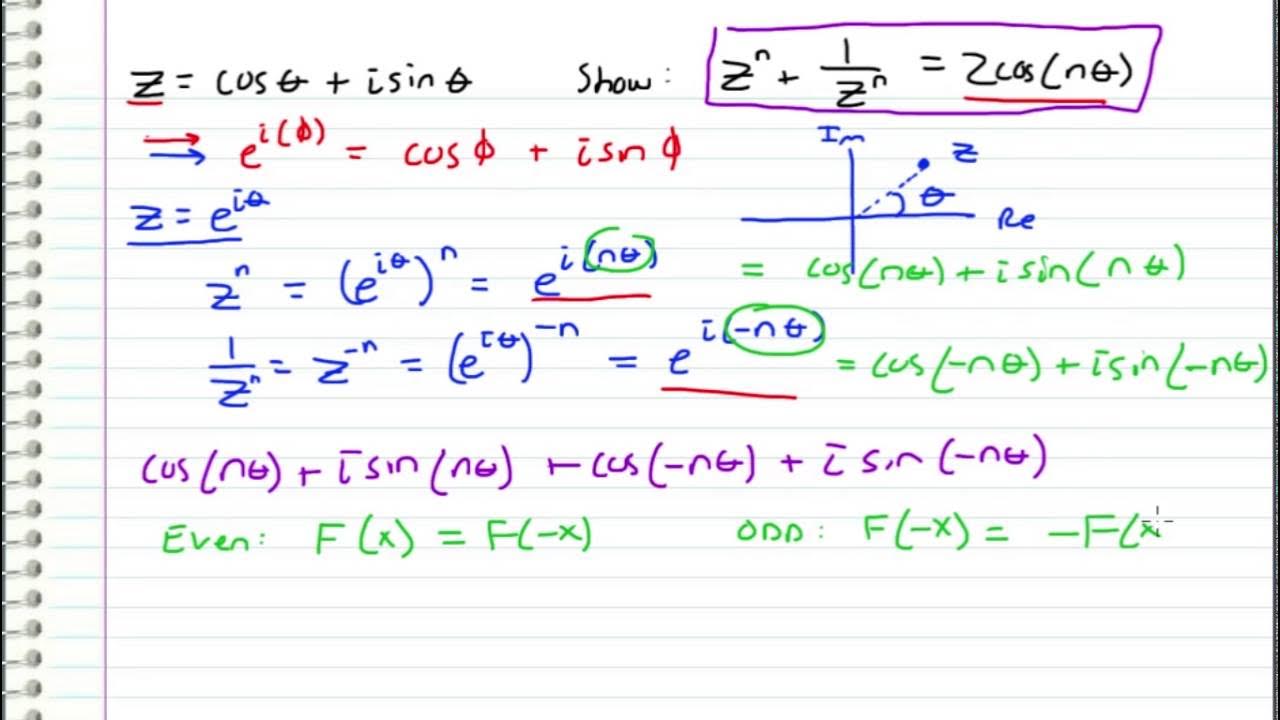 z = cosθ + i sinθ Show: zⁿ + 1/zⁿ = 2cos(nθ)
e^{i(ϕ)} = cosϕ + i sn ϕ
Im
z
θ
Re
z = e^{iθ}
zⁿ = (e^{iθ})ⁿ = e^{i(nθ)} = cos(nθ) + i sin(nθ)
1/zⁿ = z⁻ⁿ = (e^{iθ})⁻ⁿ = e^{i(-nθ)} = cos(-nθ) + i sin(-nθ)
cos(nθ) + i sin(nθ) + cos(-nθ) + i sin(-nθ)
Even: F(x) = F(-x) ODD: F(-x) = -F(x